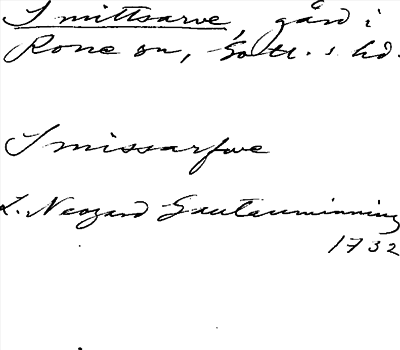 Smittsarve, gård i
Rone sn, Gotl. s hd.
Smissarfwe
L. Neogard Gautauminning
1732